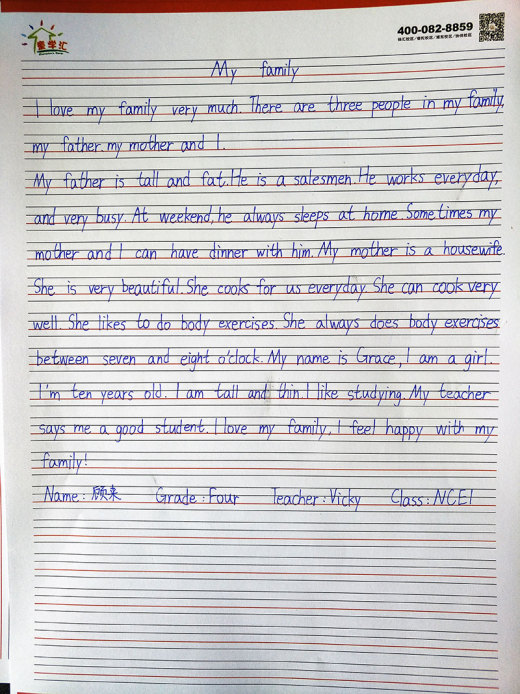 爱学汇
400-082-8859
My family
I love my family very much. There are three people in my family,
my father. my mother and I.
My father is tall and fat. He is a salesmen. He works everyday,
and very busy. At weekend, he always sleeps at home. Sometimes my
mother and I can have dinner with him. My mother is a housewife.
She is very beautiful. She cooks for us everyday. She can cook very
well. She likes to do body exercises. She always does body exercises
between seven and eight o'clock. My name is Grace, I am a girl.
I'm ten years old. I am tall and thin. I like studying. My teacher
says me a good student. I love my family, I feel happy with my
family!
Name: 顾来 Grade: Four Teacher: Vicky Class: NCE1